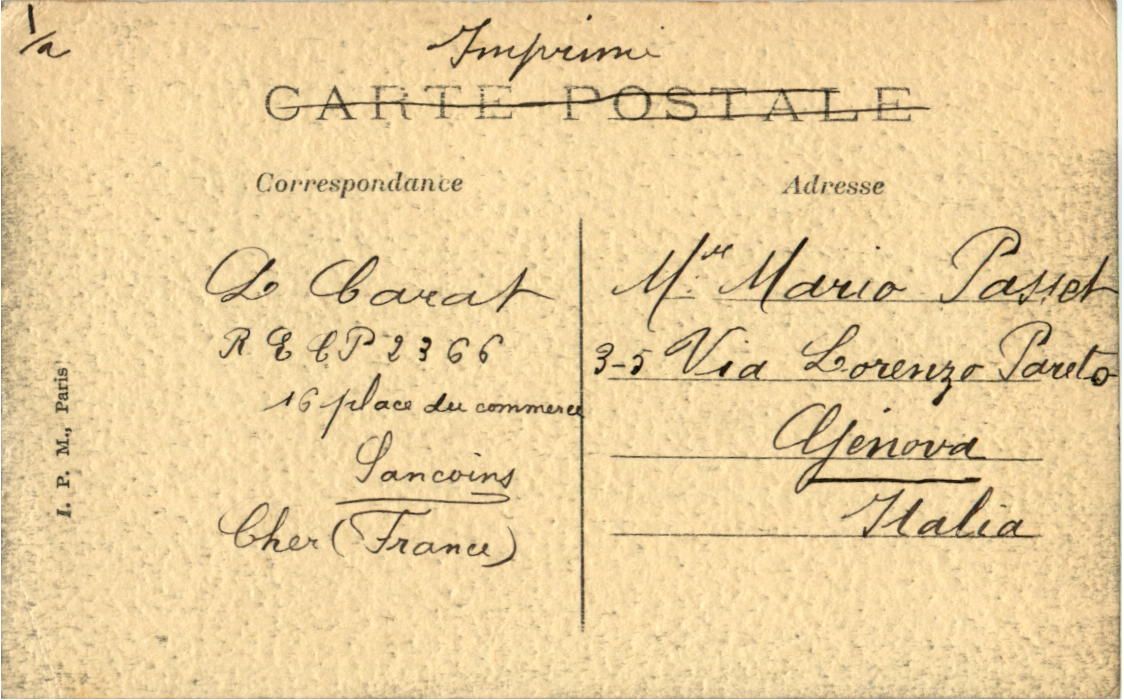 1/a
Imprimé
CARTE POSTALE
Correspondance
Adresse
L Carat
R E C P 2366
16 place du commerce
Sancoins
Cher (France)
Mr Mario Passet
3-5 Via Lorenzo Pareto
Genova
Italia
I. P. M., Paris